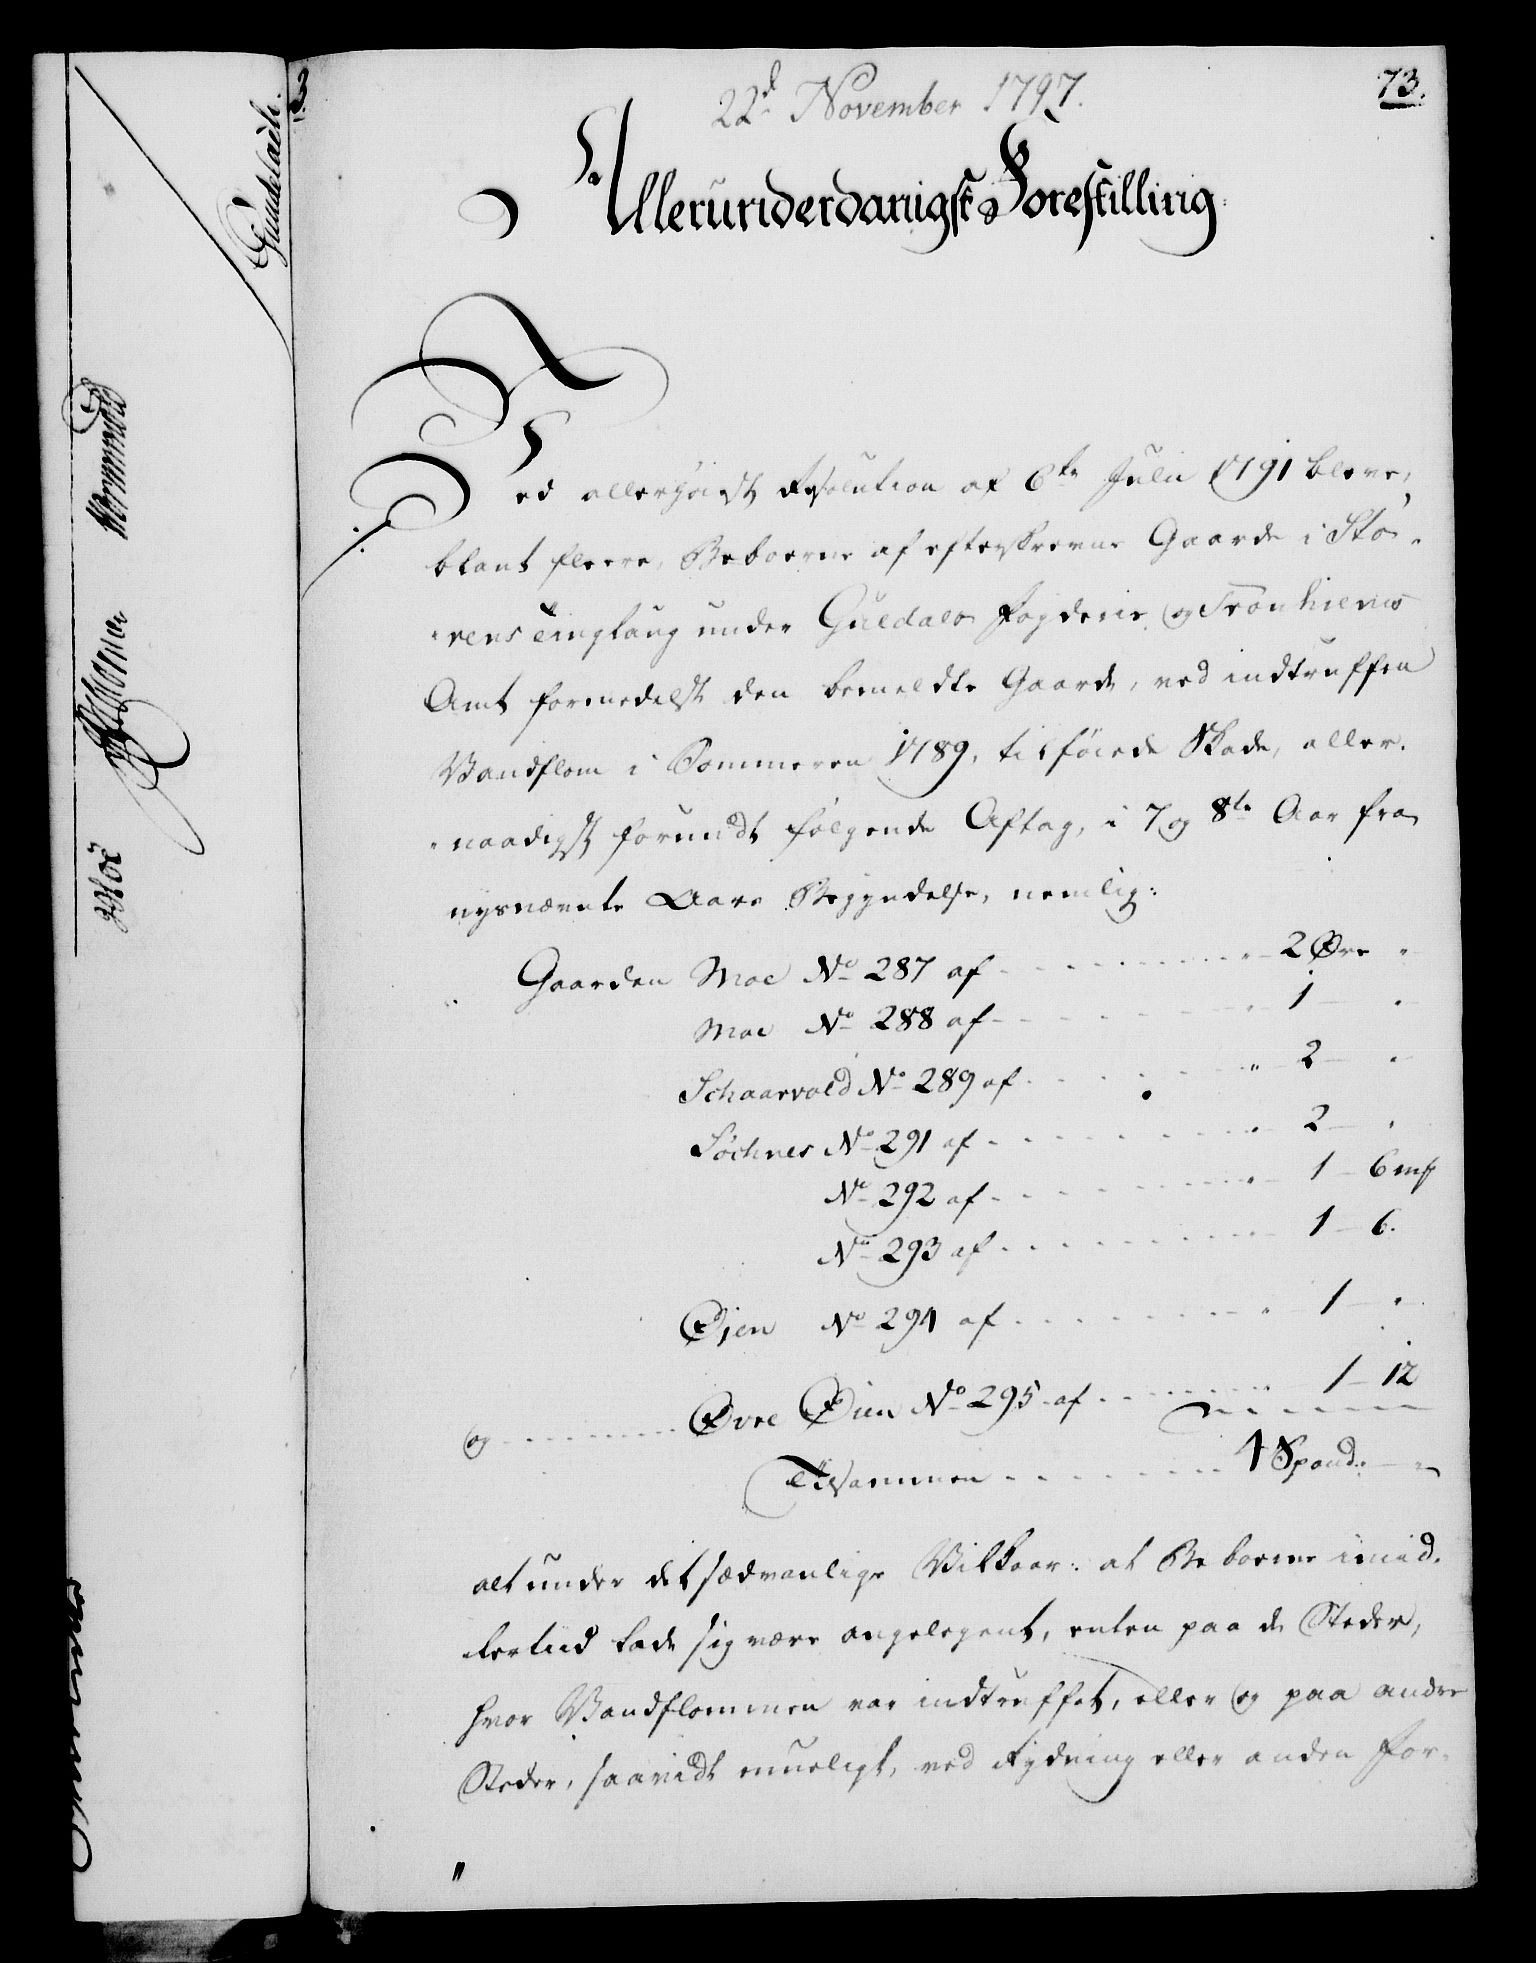 73.
22d November 1797.
Allerunderdanigst Forestilling
Ved allerhöiest Resolution af 6te Julii 1791 bleve,
blant fleere, Beboerne af efterskrevne Gaarde i Stö-
rens Tinglaug under Guldals Fogderie og Tronhiems
Amt formedelst den bemeldte Gaarde, ved indtruffen
Vandflom i Sommeren 1789, tilföiede Skade, aller-
naadigst forundt fölgende Aftag, i 7 og 8te Aar fra
nysnævnte Aars Begyndelse, nemlig:
Gaarden Moe No 287 af - - - 2 Øre "
Moe No 288 af - - - 1 - "
Schaarvold No 289 af - - - 2 - "
Söchnes No 291 af - - - 2 - "
No 292 af - - - 1 - 6 mk
No 293 af - - - 1 - 6.
Øien No 294 af - - - 1 - "
og - - - Øvre Øien No 295 af - - - 1 - 12
Tilsammen - - - 4 Spand: - "
alt under det sædvanlige Vilkaar: at Beboerne imid-
lertiid lade sig være angelegent, enten paa de Steder,
hvor Vandflommen var indtruffet, eller og paa andre
Steder, saavidt mueligt, ved Rydning eller anden For-
Gundelach.